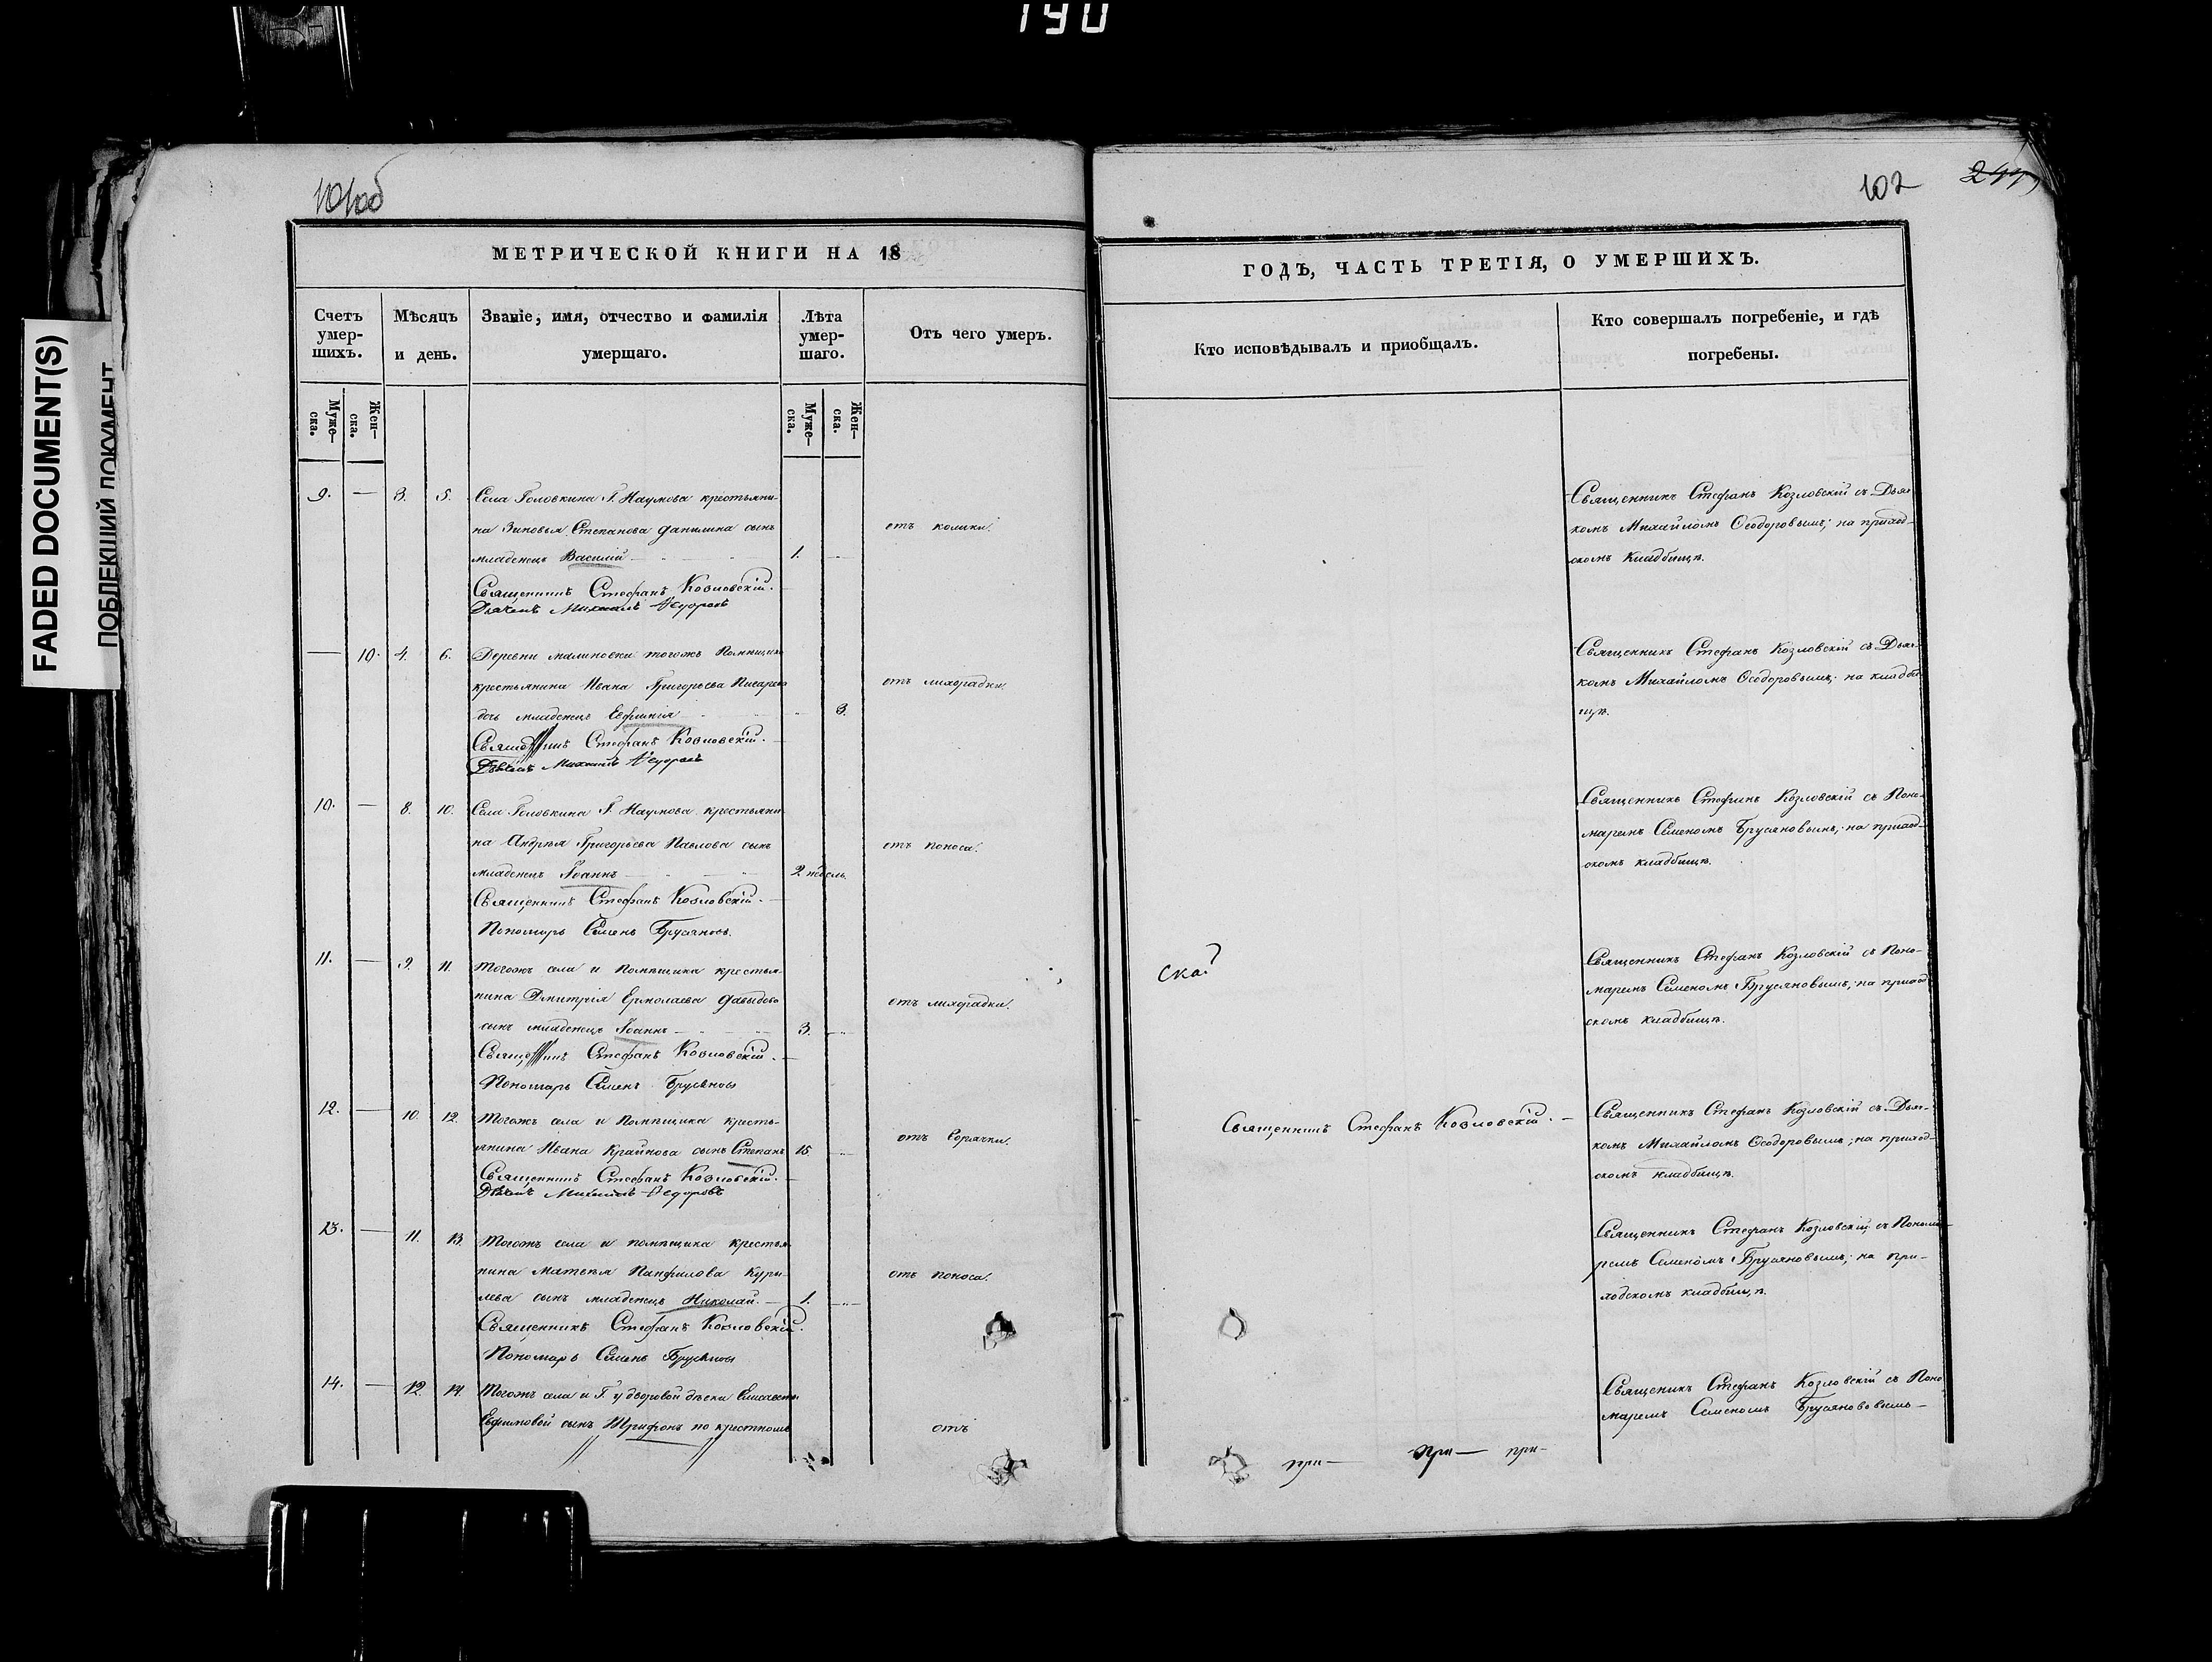 190
101об
102
FADED DOCUMENT(S)
ПОБЛЕКШИЙ ДОКУМЕНТ
МЕТРИЧЕСКОЙ КНИГИ НА 18
Счетъ умер-шихъ.
Мѣсяцъ и день.
Званіе, имя, отчество и фамилія умершаго.
Лѣта умер-шаго.
Отъ чего умеръ.
Муже-ска.
Жен-ска.
Муже-ска.
Жен-ска.
9. — 3. 5. Села Головкина Г. Наумова крестьяни-
на Зиновья Степанова Данилина сынъ отъ колики.
младенецъ Василій 1.
Священникъ Стефанъ Козловскій.
Дьячекъ Михаилъ Ѳедоровъ
— 10. 4. 6. Деревни Малиновки тогожъ Помѣщика
крестьянина Ивана Григорьева Писарева отъ лихорадки.
дочь младенецъ Евфимія 3.
Священникъ Стефанъ Козловскій.
Дьячекъ Михаилъ Ѳедоровъ
10. — 8. 10. Села Головкина Г. Наумова крестьяни-
на Андрея Григорьева Павлова сынъ отъ поноса.
младенецъ Іоаннъ 2 недѣль.
Священникъ Стефанъ Козловскій.
Пономарь Семенъ Брусяновъ.
11. — 9. 11. Тогожъ села и Помѣщика крестья-
нина Дмитрія Ермолаева Давыдова отъ лихорадки.
сынъ младенецъ Іоаннъ 3.
Священникъ Стефанъ Козловскій.
Пономарь Семенъ Брусяновъ
12. — 10. 12. Тогожъ села и Помѣщика кресть-
янина Ивана Крайнова сынъ Степанъ 15. отъ горячки.
Священникъ Стефанъ Козловскій.
Дьячекъ Михаилъ Ѳедоровъ
13. — 11. 13. Тогожъ села и помѣщика крестья-
нина Матвѣя Панфилова Куры- отъ поноса.
лева сынъ младенецъ Николай. 1.
Священникъ Стефанъ Козловскій.
Пономарь Семенъ Брусяновъ
14. — 12. 14. Тогожъ села и Г. у дворовой дѣвки Елисаветы
Евфимовой сынъ Трифонъ по крестному отъ
ГОДЪ, ЧАСТЬ ТРЕТІЯ, О УМЕРШИХЪ.
Кто исповѣдывалъ и приобщалъ.
Кто совершалъ погребеніе, и гдѣ погребены.
Священникъ Стефанъ Козловскій съ Дьяч-
комъ Михайломъ Ѳеодоровымъ; на приход-
скомъ кладбищѣ.
Священникъ Стефанъ Козловскій съ Дьяч-
комъ Михайломъ Ѳеодоровымъ; на кладби-
щѣ.
Священникъ Стефанъ Козловскій съ Поно-
маремъ Семеномъ Брусяновымъ; на приход-
скомъ кладбищѣ.
ска
Священникъ Стефанъ Козловскій съ Поно-
маремъ Семеномъ Брусяновымъ; на приход-
скомъ кладбищѣ.
Священникъ Стефанъ Козловскій.
Священникъ Стефанъ Козловскій съ Дьяч-
комъ Михайломъ Ѳеодоровымъ; на приход-
скомъ кладбищѣ.
Священникъ Стефанъ Козловскій, съ Понома-
ремъ Семеномъ Брусяновымъ; на при-
ходскомъ кладбищѣ.
Священикъ Стефанъ Козловскій съ Поно-
маремъ Семеномъ Брусянововымъ —
при — при — при —